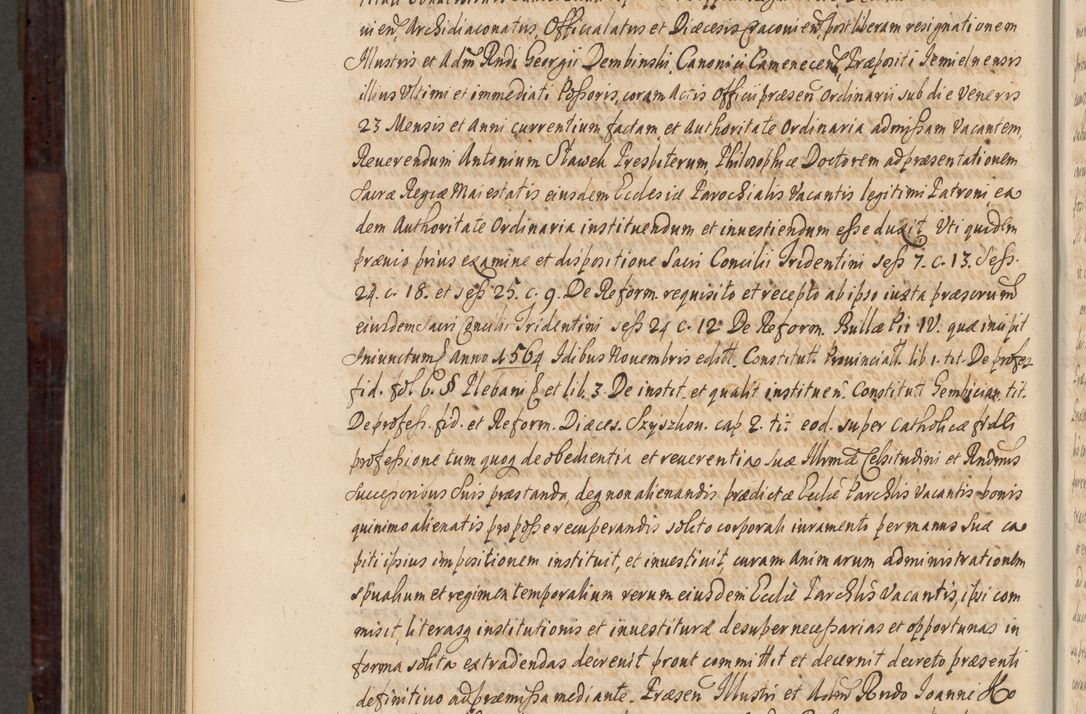 uien. Archidiaconatus, Officialatus et Diœcesis post liberam resignationem
Illustris et Adm Rndi Georgii Dembinski, Canonici Camenecen. Præpositi Jemielnensis
illius Ultimi et immediati Possoris, coram Actis Officii præsen Ordinarii sub die Veneris
23 Mensis et Anni currentium factam et Authoritate Ordinaria admissam Vacantem,
Reuerendum Antonium Sławek Presbiterum, Philosophiæ Doctorem ad præsentationem
Sacræ Regiæ Maiestatis eiusdem Ecclesiæ Parochialis Vacantis legitimi Patroni, ea
dem Authoritate Ordinaria instituendum et inuestiendum esse duxit. Uti quidem
præuio prius examine et dispositione Sacri Concilii Tridentini sess 7. c. 13. Sess.
24. c. 18. et sess 25. c. 9. De Reform. requisito et recepto ab ipso iuxta præscrum
eiusdem Sacri Concilii Tridentini sess 24 c. 12 De Reforon. Bullæ Pii IV. quæ incipit
Iniunctum Anno 1564 Idibus Nouembris edit. Constitut. Prouinciall. lib 1. tit. De profess
fid. fol. 6. § Plebani et lib. 3. De instit. et qualit instituen. Constitut Gembician. tit.
De profess. fid. et Reform. Diæces. Szyszkou. cap 2. tit eod. super Catholicæ fidei
professione tum quoq de obedientia et reuerentia suæ Illrmæ Celsitudini et Rndmis
Successoribus Suis præstanda, deq non alienandis prædictæ Ecclie Parchlis Vacantis bonis
quinimo alienatis pro posse recuperandis solito corporali iuramento per manus suæ ca
piti ipsius impositionem instituit, et inuestiuit, curam Animarum administrationem
spualium et regimen temporalium rerum eiusdem Ecclie Parchlis Vacantis, ipsi com
misit, literasq institutionis et inuestituræ desuper necessarias et opportunas in
forma solita extradendas decreuit prout committit et decernit decreto præsenti
definitiuo ad præmissa mediante. Præsen Illustri et Adm Rndo Joanne Ko